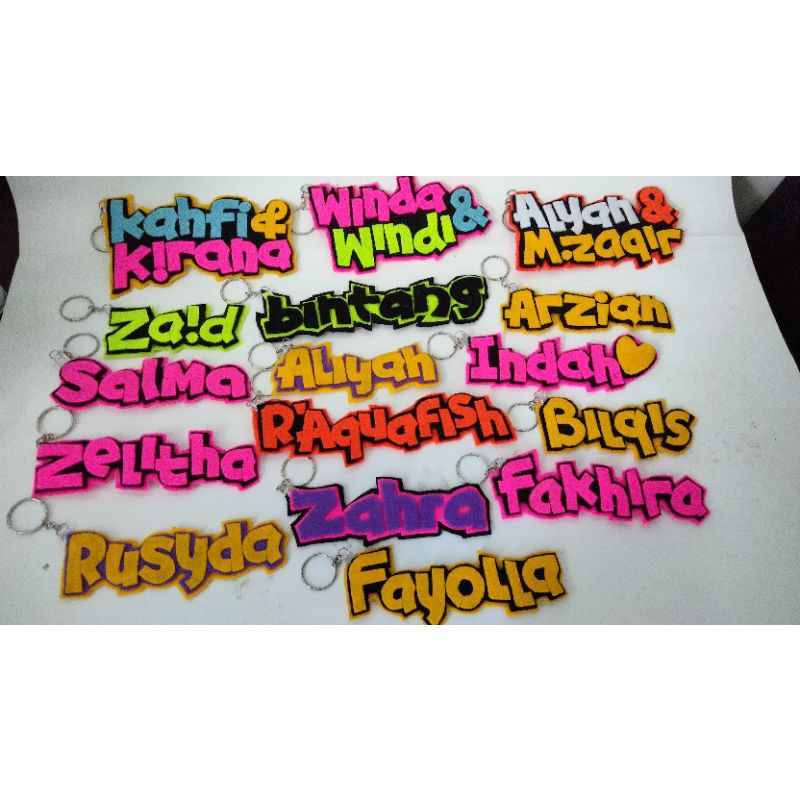 kahfi &
kirana
Winda &
Windi
Alyah &
M.zaqir
Za!d
bintang
Arzian
Salma
Aliyah
Indah
Zelitha
R'Aquafish
Bilqis
Zahra
Fakhira
Rusyda
Fayolla